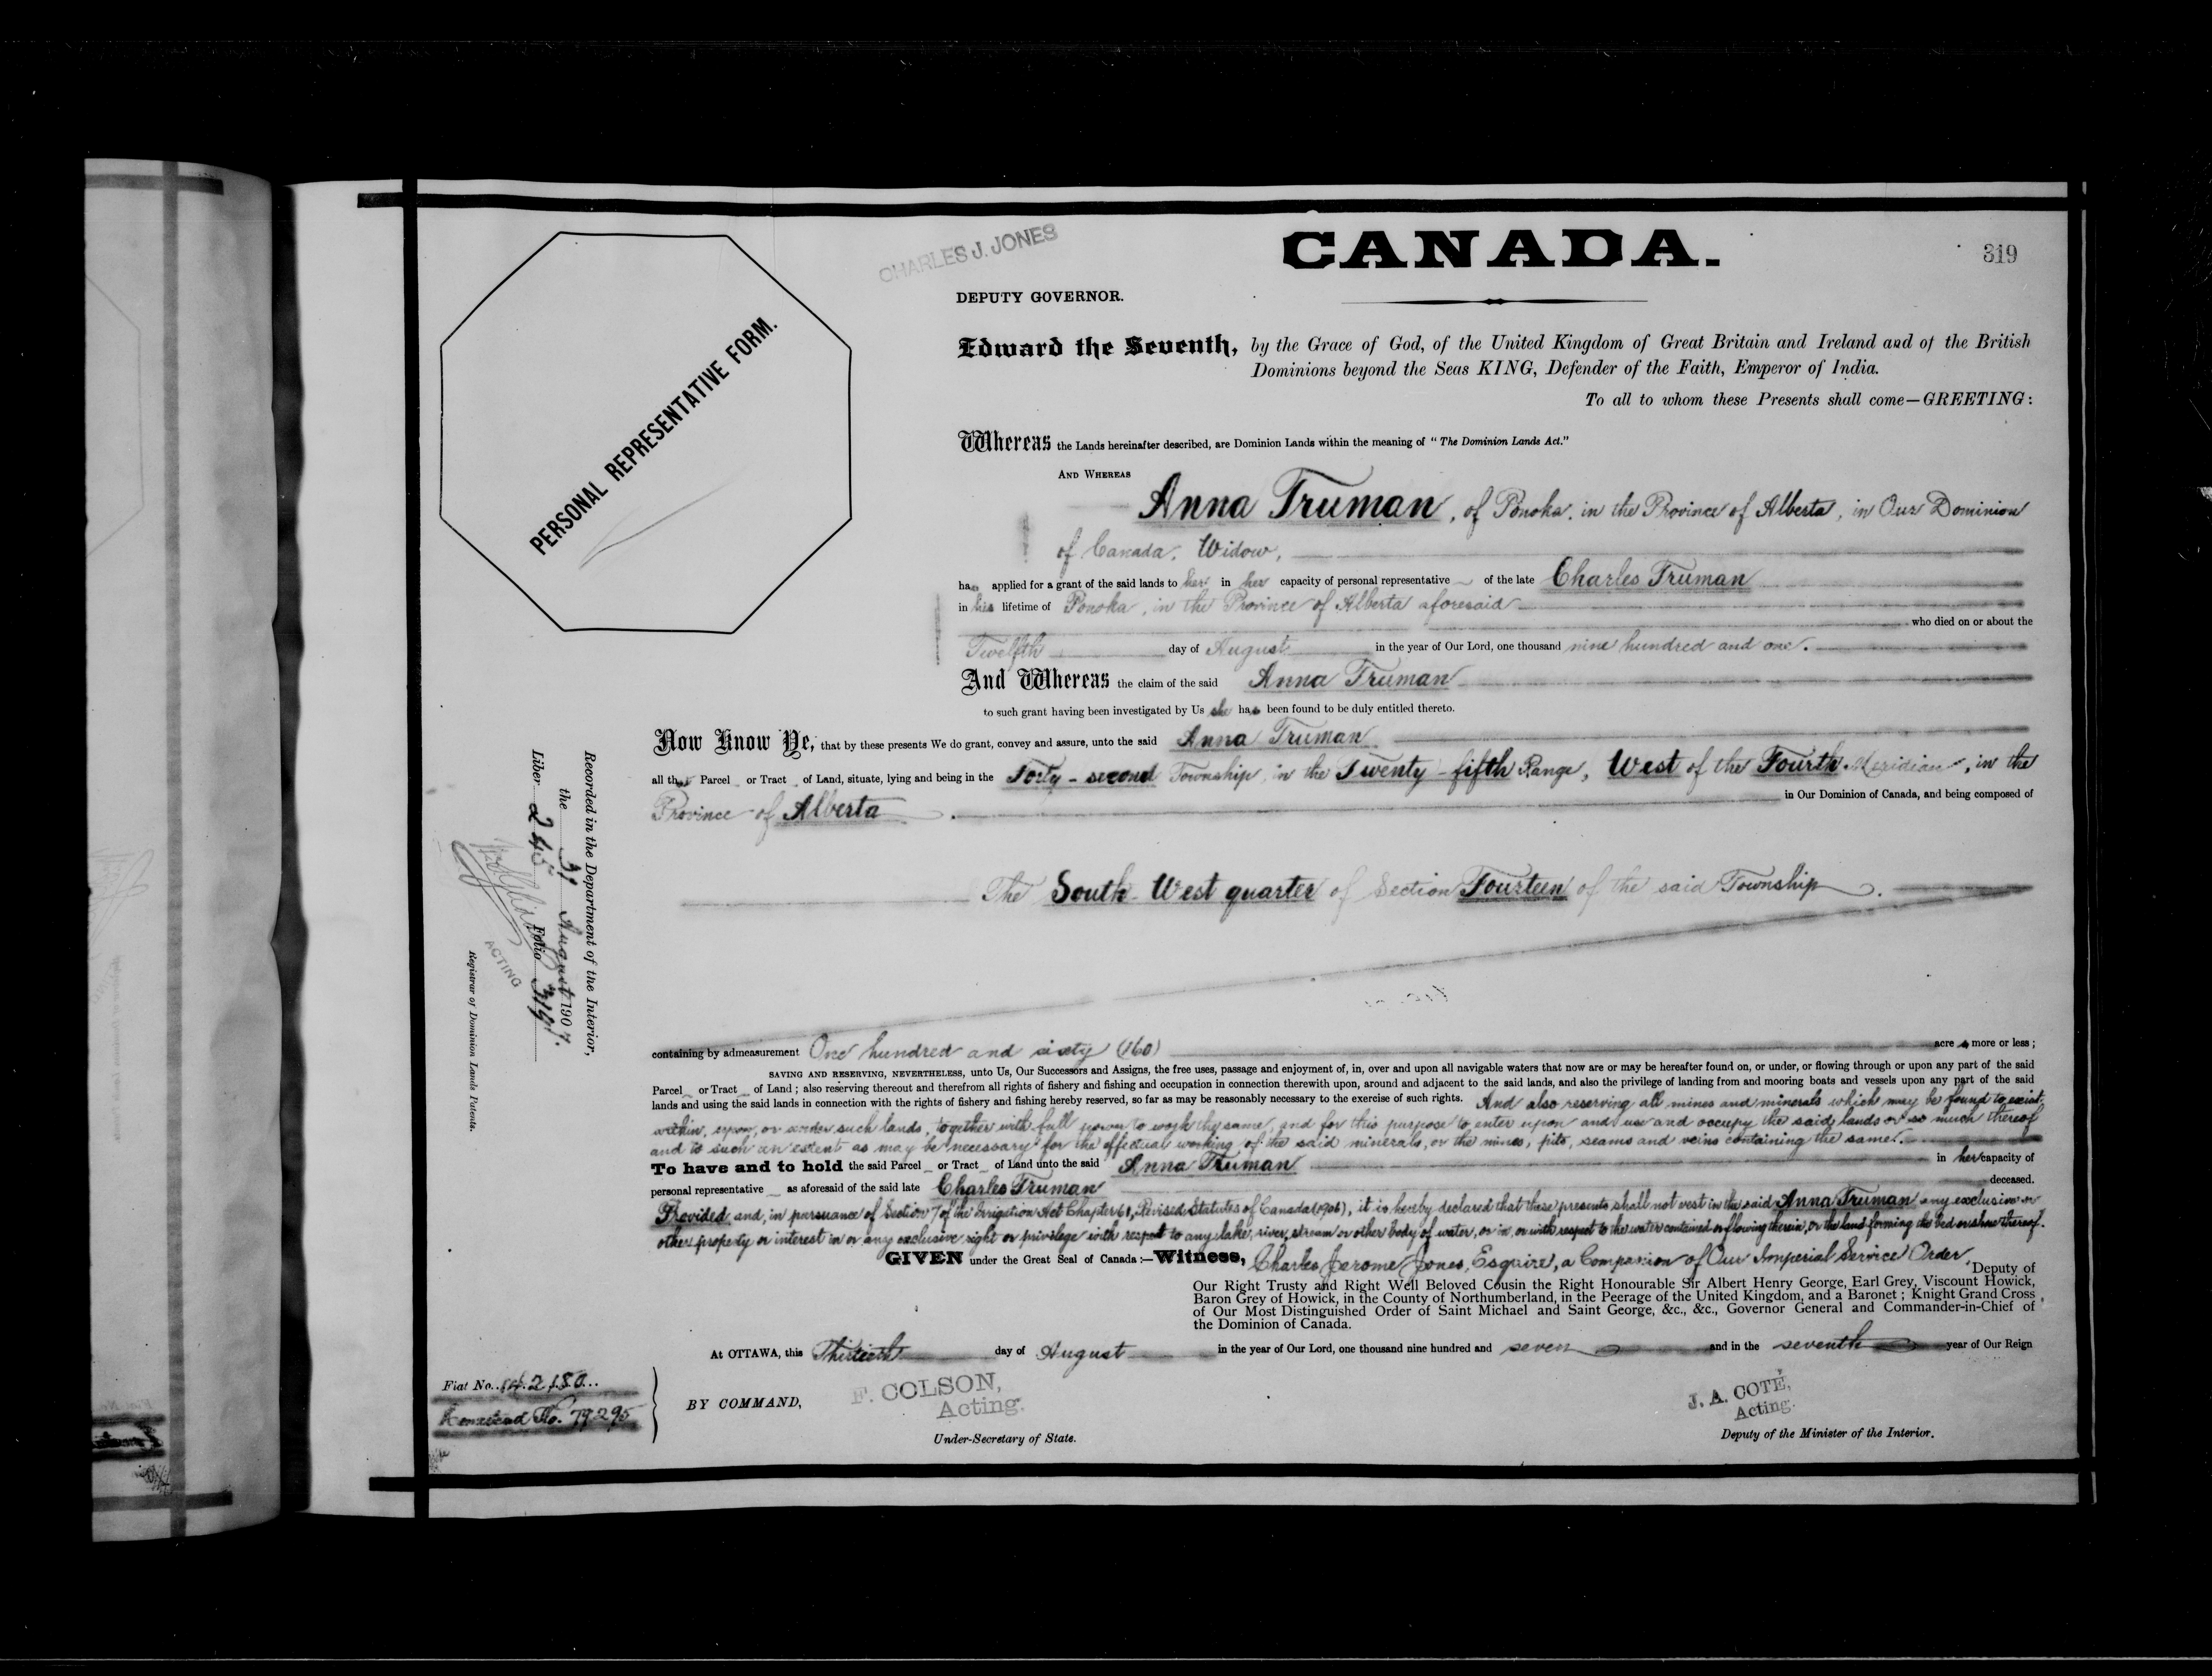 CHARLES J. JONES
CANADA.
319
DEPUTY GOVERNOR.
PERSONAL REPRESENTATIVE FORM.
Edward the Seventh, by the Grace of God, of the United Kingdom of Great Britain and Ireland and of the British
Dominions beyond the Seas KING, Defender of the Faith, Emperor of India.
To all to whom these Presents shall come—GREETING:
Whereas the Lands hereinafter described, are Dominion Lands within the meaning of "The Dominion Lands Act."
AND WHEREAS
Anna Truman, of Ponoka, in the Province of Alberta, in Our Dominion
of Canada, Widow,
has applied for a grant of the said lands to her in her capacity of personal representative of the late Charles Truman
in his lifetime of Ponoka, in the Province of Alberta aforesaid
who died on or about the
Twelfth day of August in the year of Our Lord, one thousand nine hundred and one.
And Whereas the claim of the said Anna Truman
to such grant having been investigated by Us she has been found to be duly entitled thereto.
Now Know Ye, that by these presents We do grant, convey and assure, unto the said Anna Truman
all that Parcel or Tract of Land, situate, lying and being in the Forty-second Township, in the Twenty-fifth Range, West of the Fourth Meridian, in the
Province of Alberta. in Our Dominion of Canada, and being composed of
The South West quarter of Section Fourteen of the said Township.
containing by admeasurement One hundred and sixty (160) acres more or less;
SAVING AND RESERVING, NEVERTHELESS, unto Us, Our Successors and Assigns, the free uses, passage and enjoyment of, in, over and upon all navigable waters that now are or may be hereafter found on, or under, or flowing through or upon any part of the said
Parcel or Tract of Land; also reserving thereout and therefrom all rights of fishery and fishing and occupation in connection therewith upon, around and adjacent to the said lands, and also the privilege of landing from and mooring boats and vessels upon any part of the said
lands and using the said lands in connection with the rights of fishery and fishing hereby reserved, so far as may be reasonably necessary to the exercise of such rights. And also reserving all mines and minerals which may be found to exist
within, upon, or under such lands, together with full power to work the same, and for this purpose to enter upon and use and occupy the said lands or so much thereof
and to such an extent as may be necessary for the effectual working of the said minerals, or the mines, pits, seams and veins containing the same.
To have and to hold the said Parcel or Tract of Land unto the said Anna Truman in her capacity of
personal representative as aforesaid of the said late Charles Truman deceased.
Provided and, in pursuance of Section 7 of the Irrigation Act Chapter 61, Revised Statutes of Canada (1906), it is hereby declared that these presents shall not vest in the said Anna Truman any exclusive or
other property or interest in or any exclusive right or privilege with respect to any lake, river, stream or other body of water, or in, or with respect to the water contained or flowing therein, or the land forming the bed or shore thereof.
GIVEN under the Great Seal of Canada:—Witness, Charles Jerome Jones, Esquire, a Companion of Our Imperial Service Order, Deputy of
Our Right Trusty and Right Well Beloved Cousin the Right Honourable Sir Albert Henry George, Earl Grey, Viscount Howick,
Baron Grey of Howick, in the County of Northumberland, in the Peerage of the United Kingdom, and a Baronet; Knight Grand Cross
of Our Most Distinguished Order of Saint Michael and Saint George, &c., &c., Governor General and Commander-in-Chief of
the Dominion of Canada.
At OTTAWA, this Thirtieth day of August in the year of Our Lord, one thousand nine hundred and seven and in the seventh year of Our Reign
BY COMMAND,
F. COLSON,
Acting.
Under-Secretary of State.
J. A. COTÉ,
Acting.
Deputy of the Minister of the Interior.
Fiat No. 142180
Homestead No. 79295
Recorded in the Department of the Interior,
the 31 August 1907.
Liber 245 Folio 319.
ACTING
Registrar of Dominion Lands Patents.